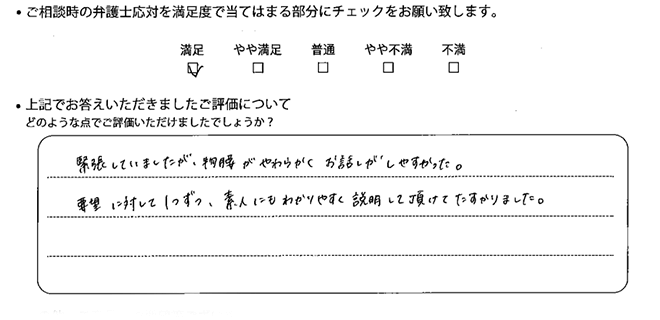 ・ご相談時の弁護士応対を満足度で当てはまる部分にチェックをお願い致します。
満足 やや満足 普通 やや不満 不満
☑ □ □ □ □
・上記でお答えいただきましたご評価について
どのような点でご評価いただけましたでしょうか？
緊張していましたが、物腰がやわらかく お話しがしやすかった。
要望に対して1つずつ、素人にもわかりやすく説明して頂けてたすかりました。